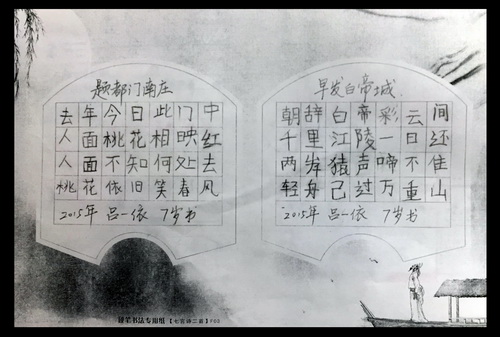 题都门南庄
去年今日此门中
人面桃花相映红
人面不知何处去
桃花依旧笑春风
2015年 吕一依 7岁书
早发白帝城
朝辞白帝彩云间
千里江陵一日还
两岸猿声啼不住
轻舟已过万重山
2015年 吕一依 7岁书
硬笔书法专用纸【七言诗二首】